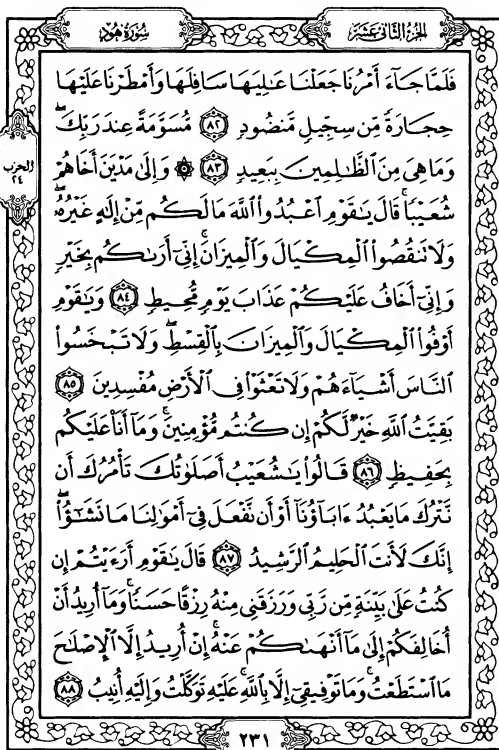 سُورَةُ هُودٍ
الجزء الثاني عشر
فَلَمَّا جَآءَ أَمْرُنَا جَعَلْنَا عَٰلِيَهَا سَافِلَهَا وَأَمْطَرْنَا عَلَيْهَا
حِجَارَةً مِّن سِجِّيلٍ مَّنضُودٍ ٨٢ مُّسَوَّمَةً عِندَ رَبِّكَۖ
وَمَا هِىَ مِنَ ٱلظَّٰلِمِينَ بِبَعِيدٍ ٨٣ ۞ وَإِلَىٰ مَدْيَنَ أَخَاهُمْ
شُعَيْبًاۚ قَالَ يَٰقَوْمِ ٱعْبُدُوا۟ ٱللَّهَ مَا لَكُم مِّنْ إِلَٰهٍ غَيْرُهُۥۖ
وَلَا تَنقُصُوا۟ ٱلْمِكْيَالَ وَٱلْمِيزَانَۚ إِنِّىٓ أَرَىٰكُم بِخَيْرٍ
وَإِنِّىٓ أَخَافُ عَلَيْكُمْ عَذَابَ يَوْمٍ مُّحِيطٍ ٨٤ وَيَٰقَوْمِ
أَوْفُوا۟ ٱلْمِكْيَالَ وَٱلْمِيزَانَ بِٱلْقِسْطِۖ وَلَا تَبْخَسُوا۟
ٱلنَّاسَ أَشْيَآءَهُمْ وَلَا تَعْثَوْا۟ فِى ٱلْأَرْضِ مُفْسِدِينَ ٨٥
بَقِيَّتُ ٱللَّهِ خَيْرٌ لَّكُمْ إِن كُنتُم مُّؤْمِنِينَۚ وَمَآ أَنَا۠ عَلَيْكُم
بِحَفِيظٍ ٨٦ قَالُوا۟ يَٰشُعَيْبُ أَصَلَوٰتُكَ تَأْمُرُكَ أَن
نَّتْرُكَ مَا يَعْبُدُ ءَابَآؤُنَآ أَوْ أَن نَّفْعَلَ فِىٓ أَمْوَٰلِنَا مَا نَشَٰٓؤُا۟ۖ
إِنَّكَ لَأَنتَ ٱلْحَلِيمُ ٱلرَّشِيدُ ٨٧ قَالَ يَٰقَوْمِ أَرَءَيْتُمْ إِن
كُنتُ عَلَىٰ بَيِّنَةٍ مِّن رَّبِّى وَرَزَقَنِى مِنْهُ رِزْقًا حَسَنًاۚ وَمَآ أُرِيدُ أَنْ
أُخَالِفَكُمْ إِلَىٰ مَآ أَنْهَىٰكُمْ عَنْهُۚ إِنْ أُرِيدُ إِلَّا ٱلْإِصْلَٰحَ
مَا ٱسْتَطَعْتُۚ وَمَا تَوْفِيقِىٓ إِلَّا بِٱللَّهِۚ عَلَيْهِ تَوَكَّلْتُ وَإِلَيْهِ أُنِيبُ ٨٨
الحزب
٢٤
٢٣١